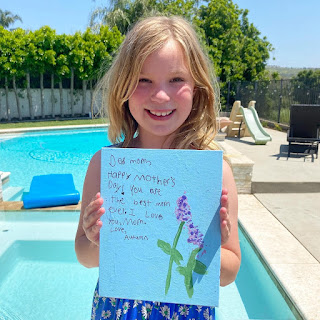 Dear mom,
Happy Mother's
Day! You are
the best mom
ever! I Love
You, Mom.
Love,
Autumn